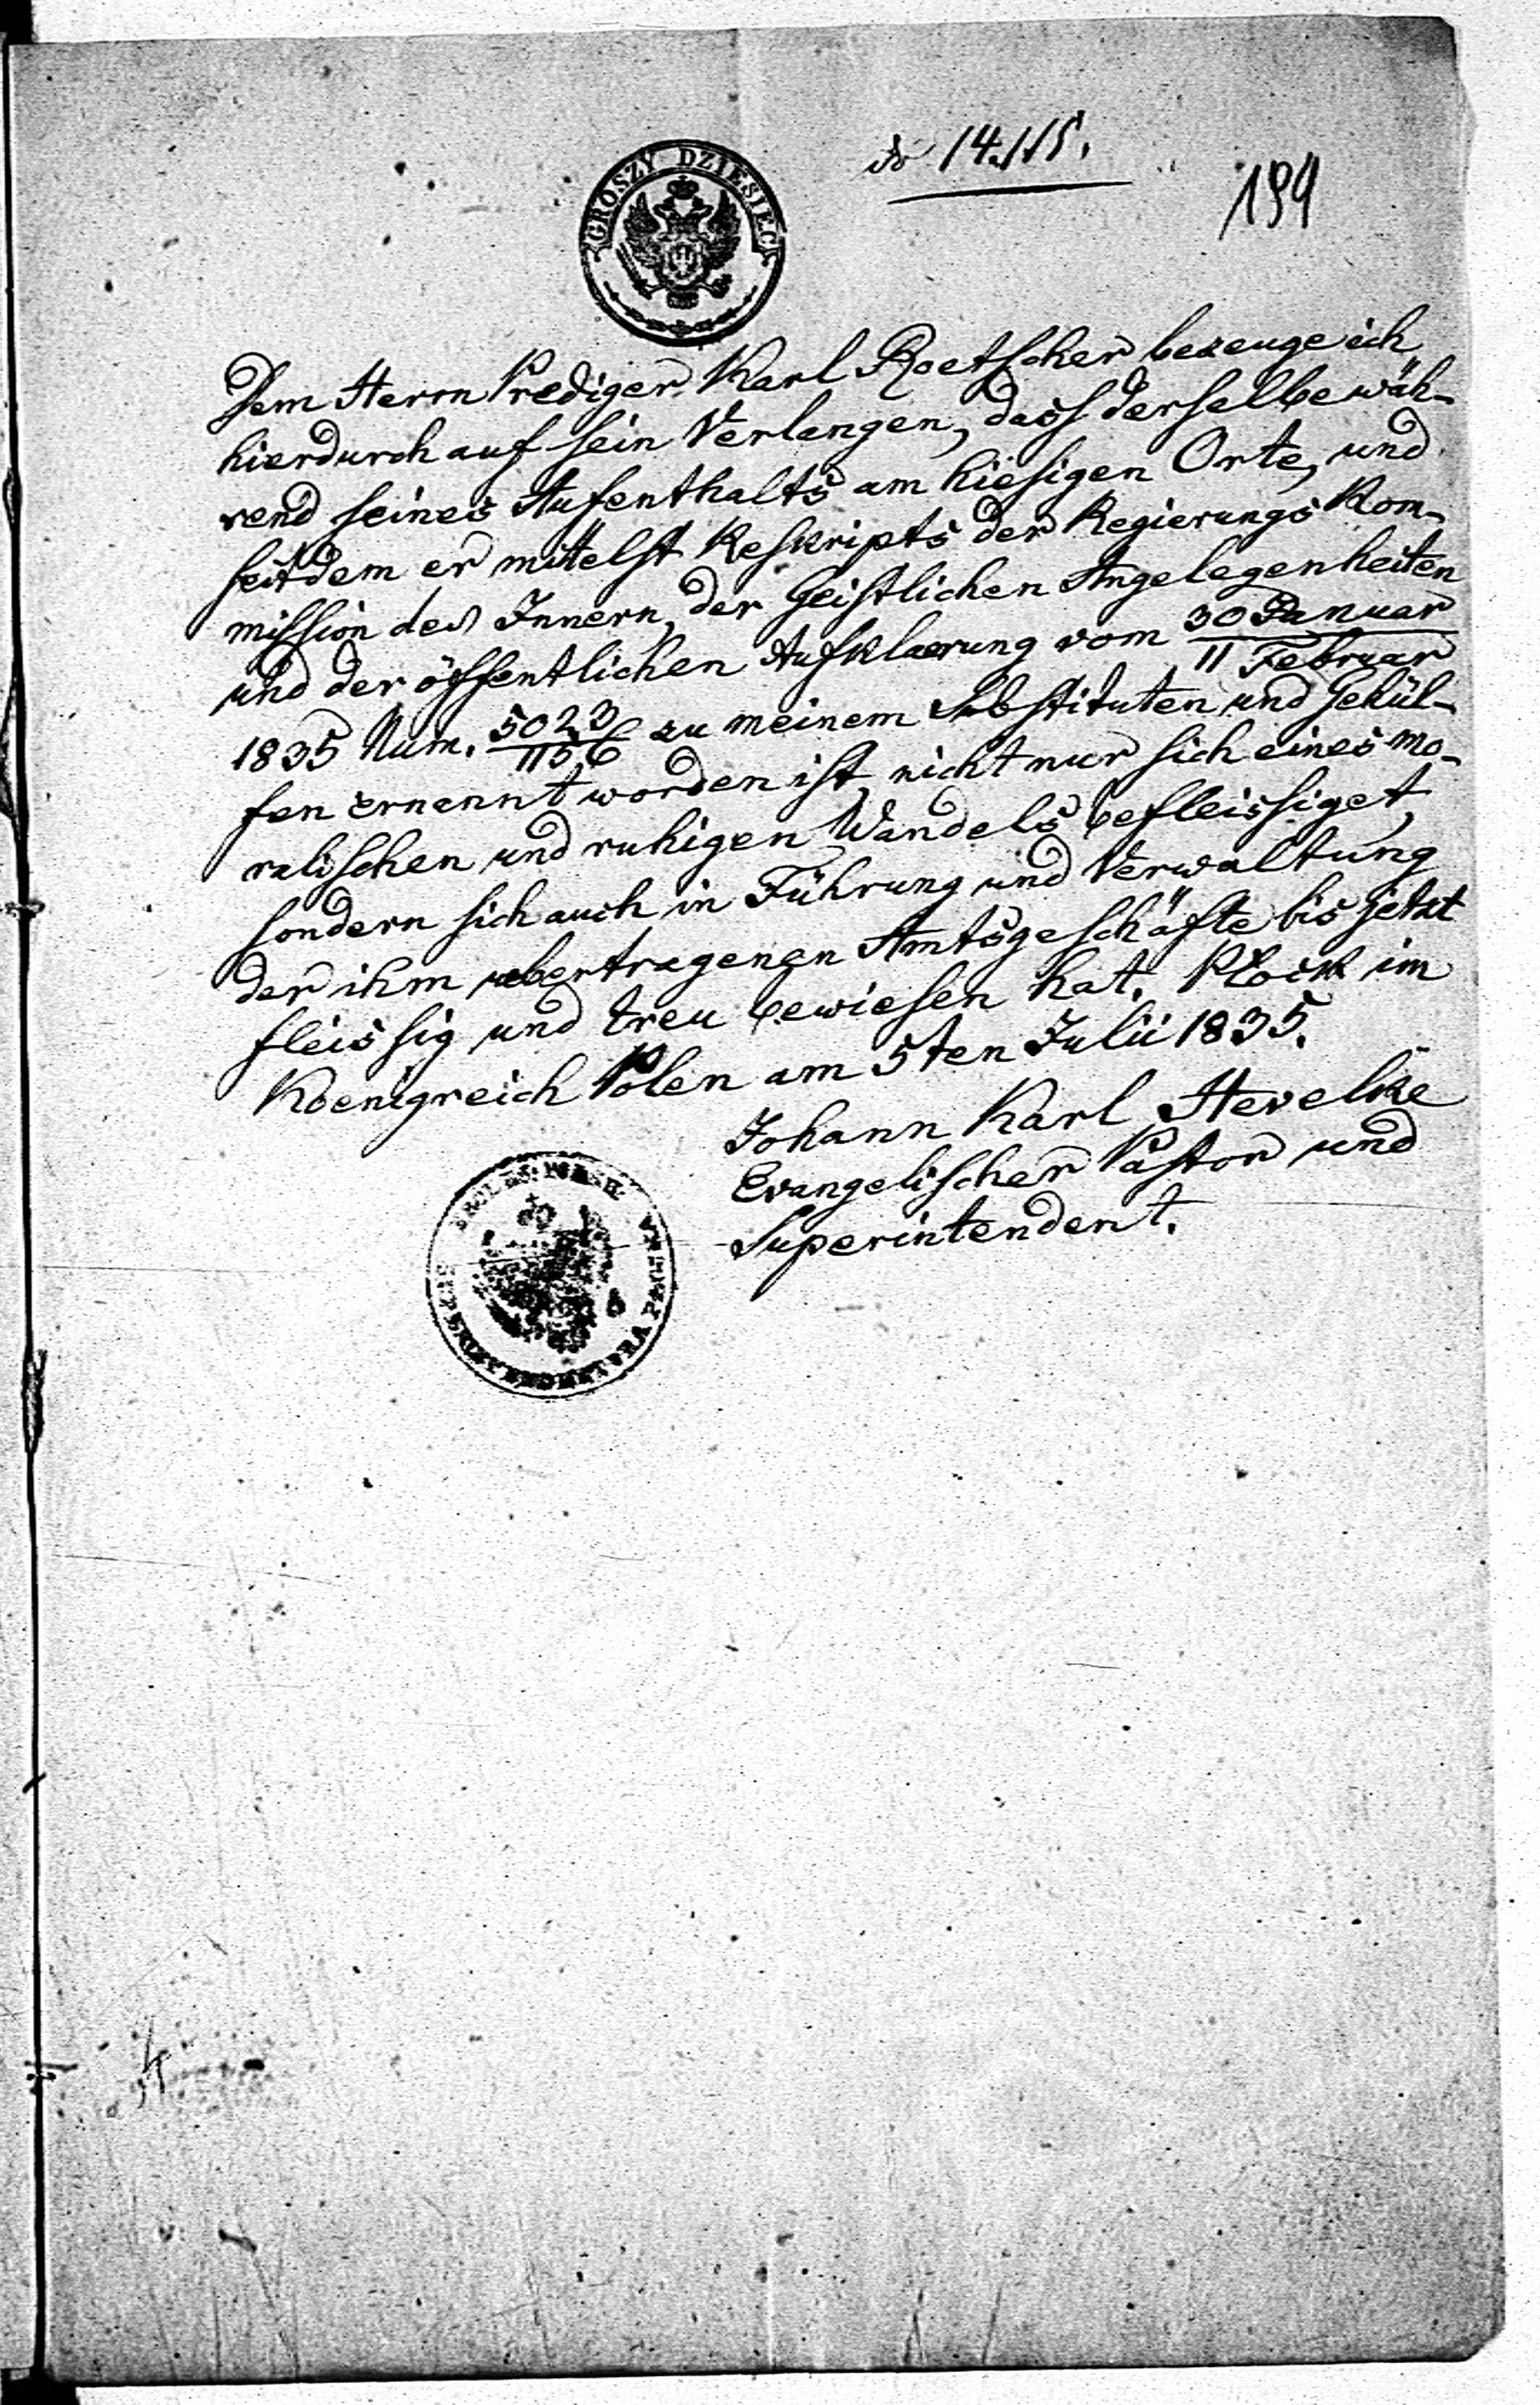 № 14115.
199
GROSZY DZIESIĘĆ
Dem Herrn Prediger Karl Roetscher bezeuge ich
hierdurch auf sein Verlangen, dass derselbe wäh-
rend seines Aufenthalts am hiesigen Orte, und
seitdem er mittelst Reskripts der Regierungs Kom-
mission des Innern, der Geistlichen Angelegenheiten
und der öffentlichen Aufklaerung vom 30 Januar / 11 Februar
1835 Num. 5023/1156 zu meinem Substituten und Gehül-
fen ernennt worden ist, nicht nur sich eines mo-
ralischen und ruhigen Wandels befleissiget,
sondern sich auch in Führung und Verwaltung
der ihm uebertragenen Amtsgeschäfte bis jetzt
fleissig und treu bewiesen hat. Płock im
Koenigreich Polen am 5ten Julii 1835.
Johann Karl Hevelke
Evangelischer Pastor und
Superintendent.